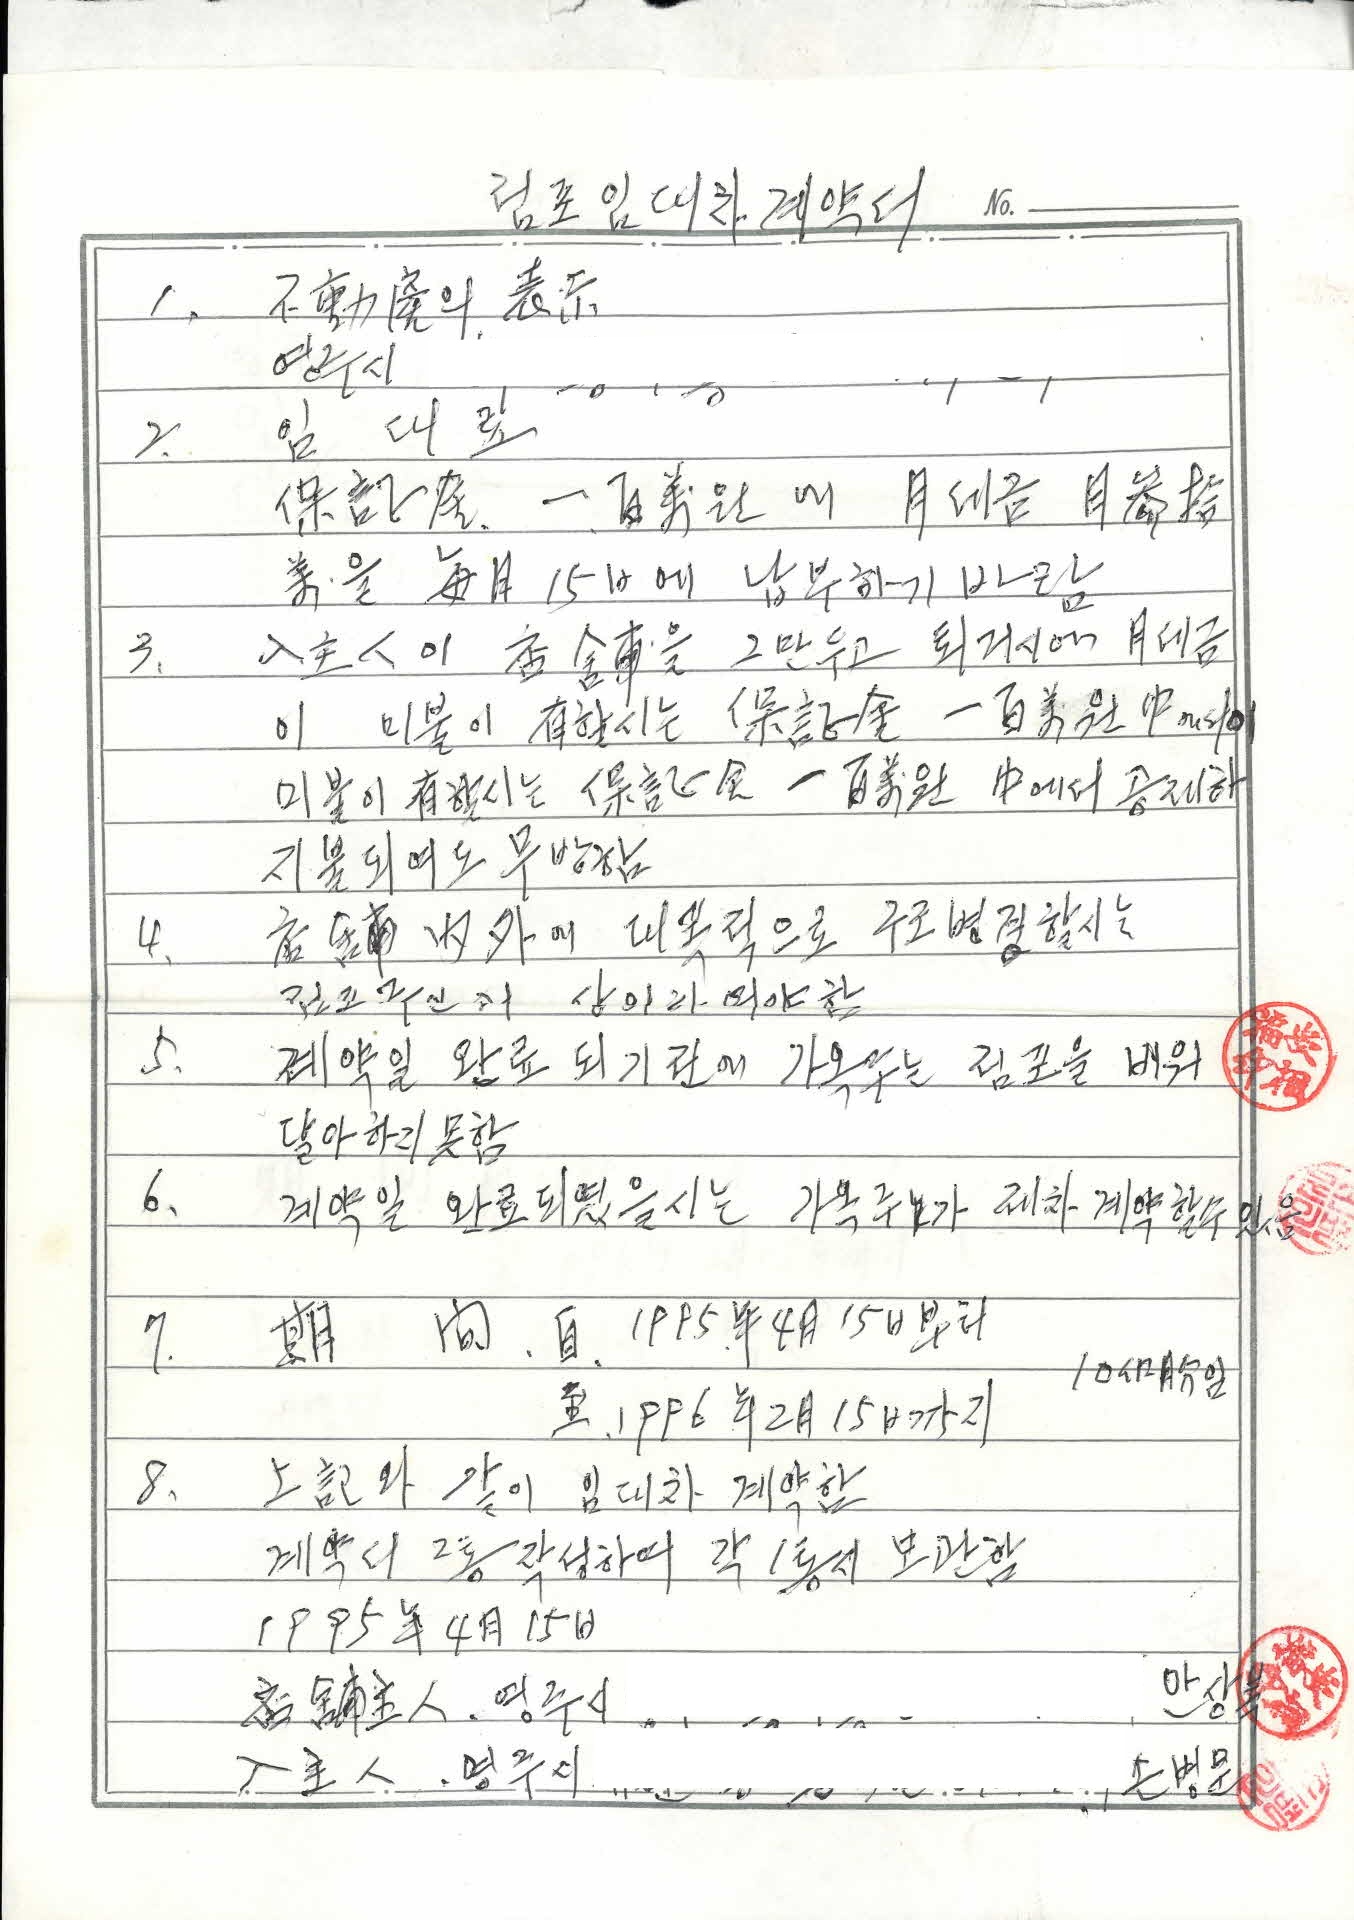 점포임대차계약서 No.
1. 不動産의 表示
영주시
2. 임대료
保証金 一百萬원에 月세금 月參拾
萬을 每月 15日에 납부하기 바람
3. 入主人이 店舖을 그만두고 퇴거시에 月세금
이 미불이 有할시는 保証金 一百萬원 中에서
미불이 有할시는 保証金 一百萬원 中에서 공제하
지불되여도 무방함
4. 店舖 內外에 대폭적으로 구조변경할시는
점포주인과 상의하여야함
5. 계약일 완료되기전에 가옥주는 점포을 배워
달아하지못함
6. 계약일 완료되였을시는 가옥주가 재차 계약할수있음
7. 期間. 自. 1995年 4月 15日부터
10개月
至. 1996年 2月 15日까지
8. 上記와 같이 임대차 계약함
계약서 2통 작성하여 각 1통씩 보관함
1995年 4月 15日
店舖主人. 영주시 안상복
入主人. 영주시 손병문